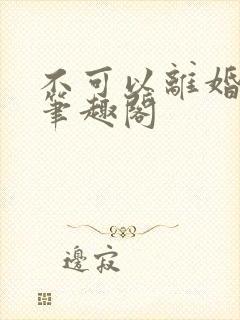 不可以離婚
筆趣閣
邊寂